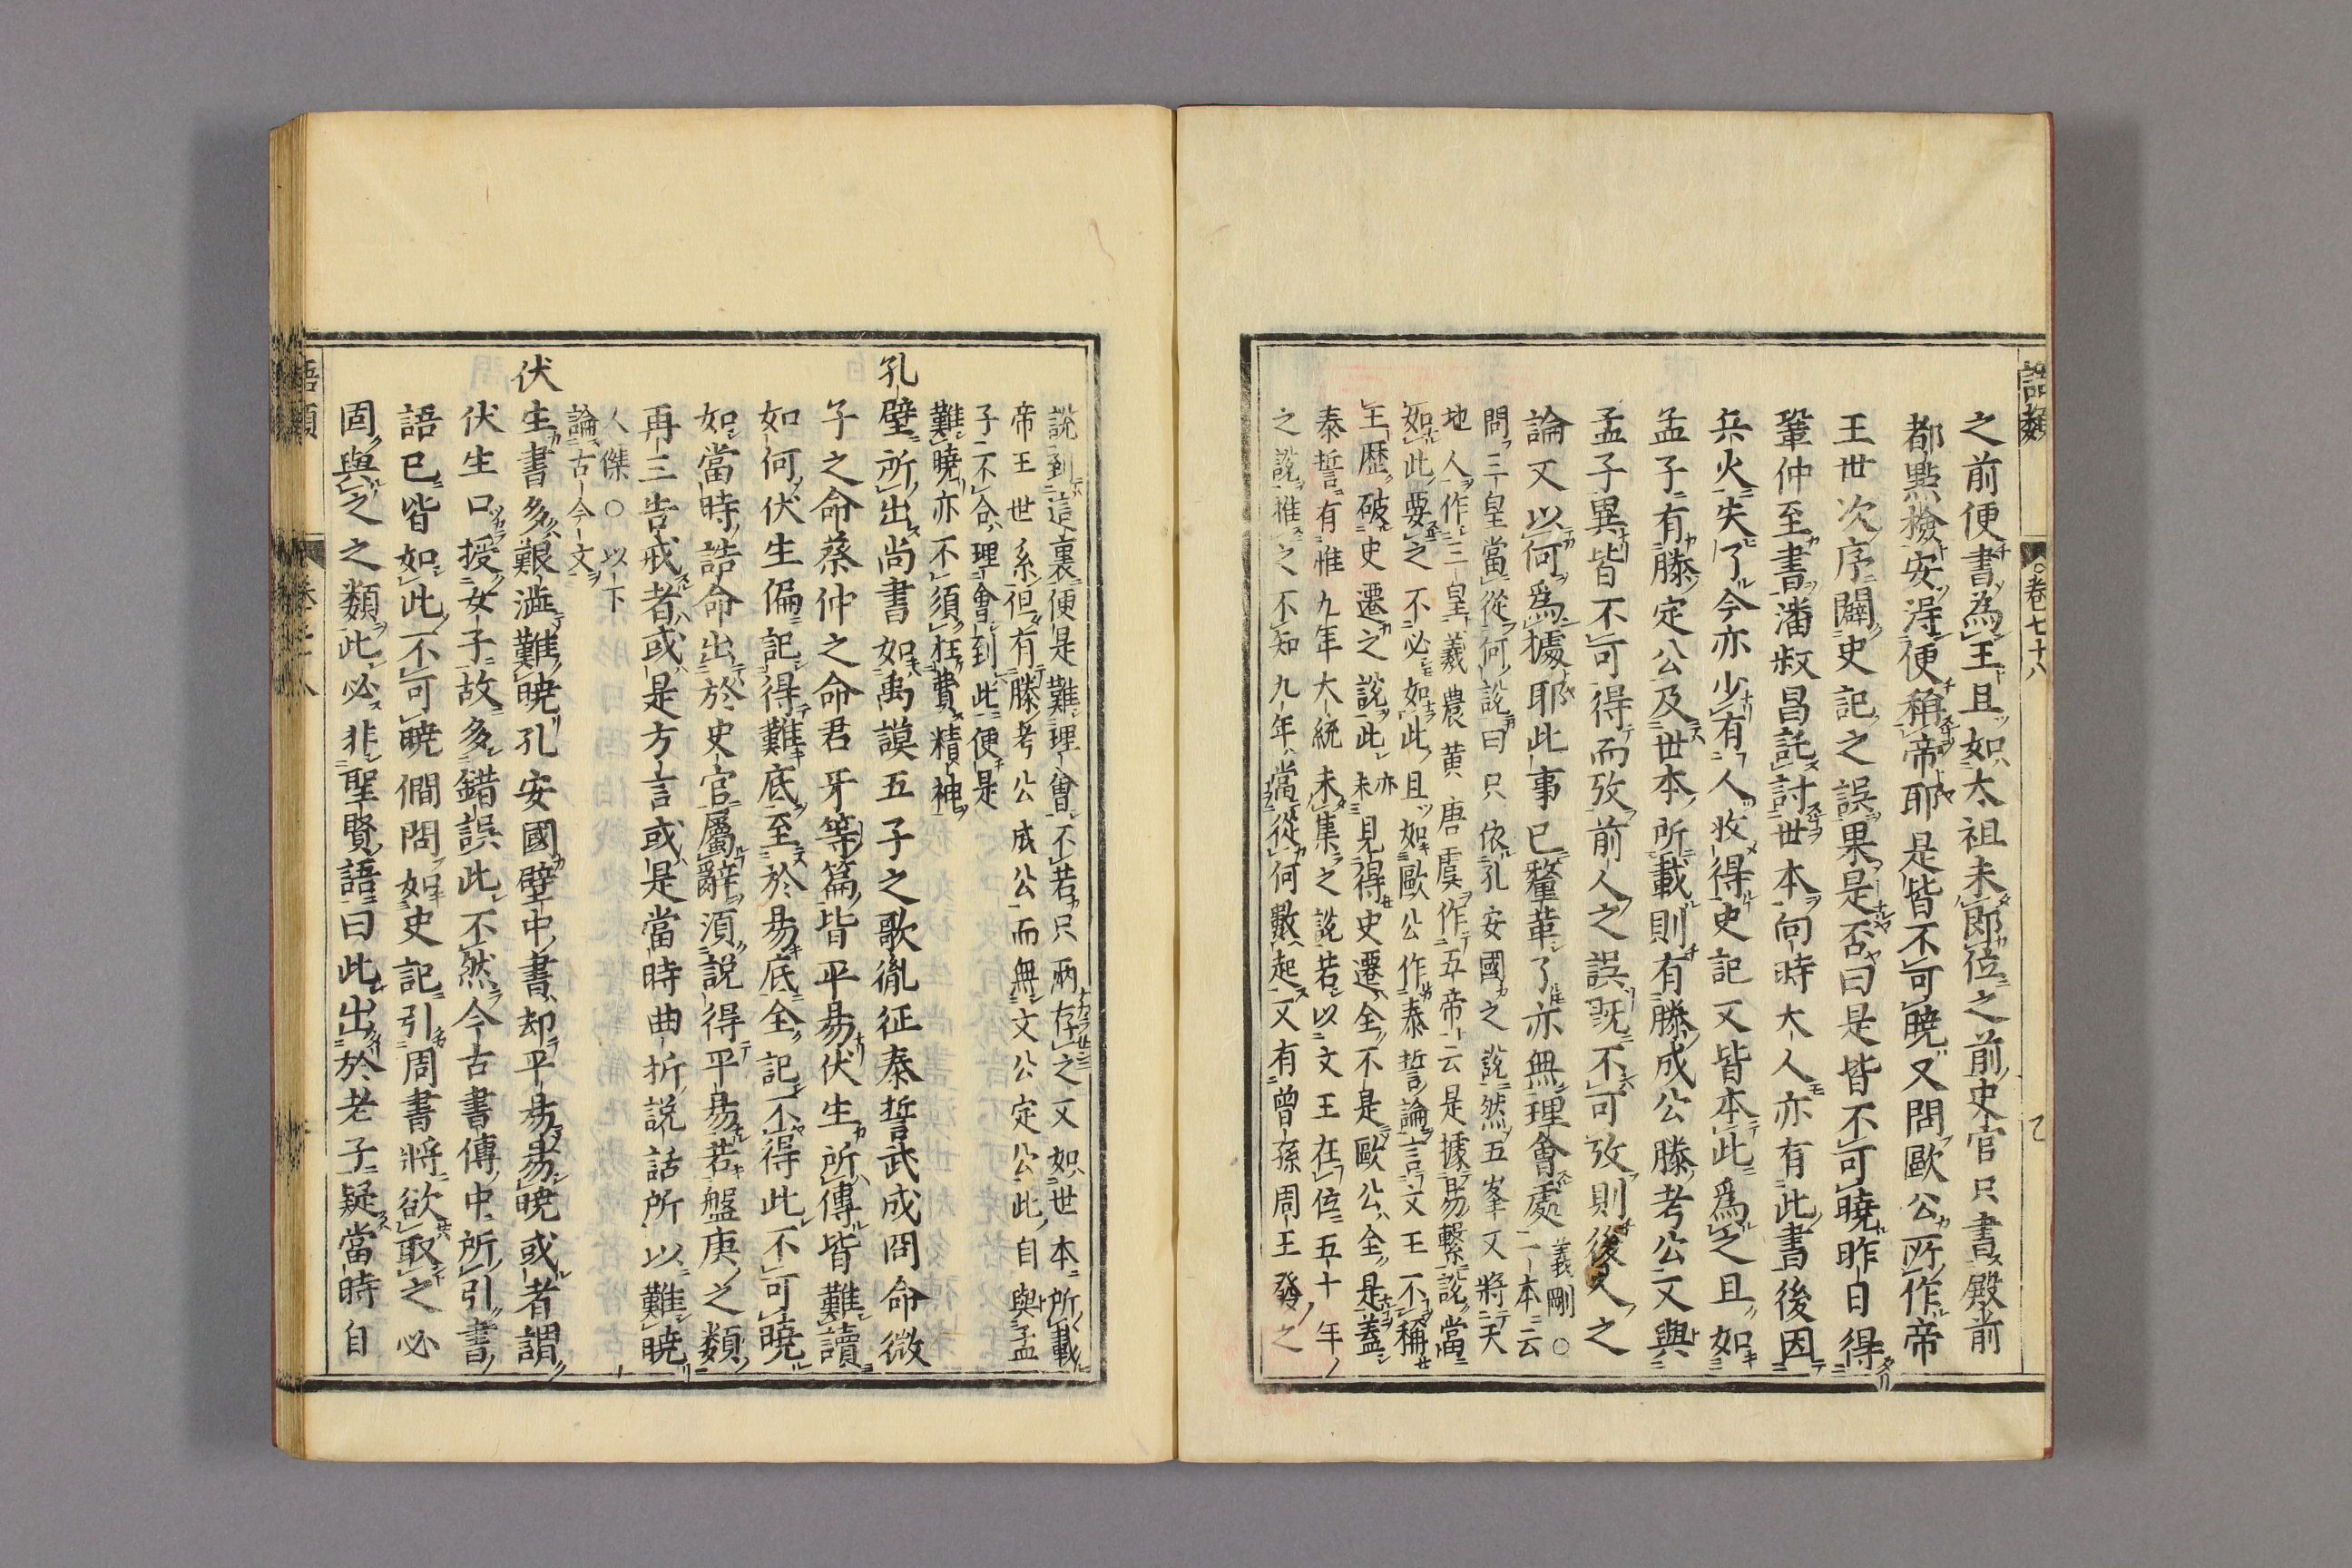 語類
卷七十八
之前便書為王且如太祖未卽位之前史官只書殿前
都點檢安得便稱帝耶是皆不可曉又問歐公所作帝
王世次序闢史記之誤果是否曰是皆不可曉昨日得
鞏仲至書潘叔昌託討世本向時大人亦有此書後因
兵火失了今亦少有人收得史記又皆本此爲之且如
孟子有滕定公及世本所載則有滕成公滕考公又與
孟子異皆不可得而攷前人之誤既不可攷則後人之
論又以何爲據耶此事已釐革了亦無理會處
義剛○
二本云
問三皇當從何說曰只依孔安國之說然五峯又將天
地人作三皇羲農黃唐虞作五帝云是據易繫說當
如此要之不必如此且如歐公作泰誓論言文王不稱
王歷破史遷之說此亦未見得史遷全不是歐公全是蓋
泰誓有惟九年大統未集之說若以文王在位五十年
之說推之不知九年當從何數起又有曾孫周王發之
說到這裏便是難理會不若只兩存之又如世本所載
帝王世系但有滕考公成公而無文公定公此自與孟
子不合理會到此便是
難曉亦不須枉費精神
孔壁所出尚書如禹謨五子之歌胤征泰誓武成冏命微
子之命蔡仲之命君牙等篇皆平易伏生所傳皆難讀
如何伏生偏記得難底至於易底全記不得此不可曉
如當時誥命出於史官屬辭須說得平易若盤庚之類
再三告戒者或是方言或是當時曲折說話所以難曉
人傑○以下
論古今文
伏生書多艱澁難曉孔安國壁中書却平易易曉或者謂
伏生口授女子故多錯誤此不然今古書傳中所引書
語已皆如此不可曉僩問如史記引周書將欲取之必
固與之之類此必非聖賢語曰此出於老子疑當時自
語類